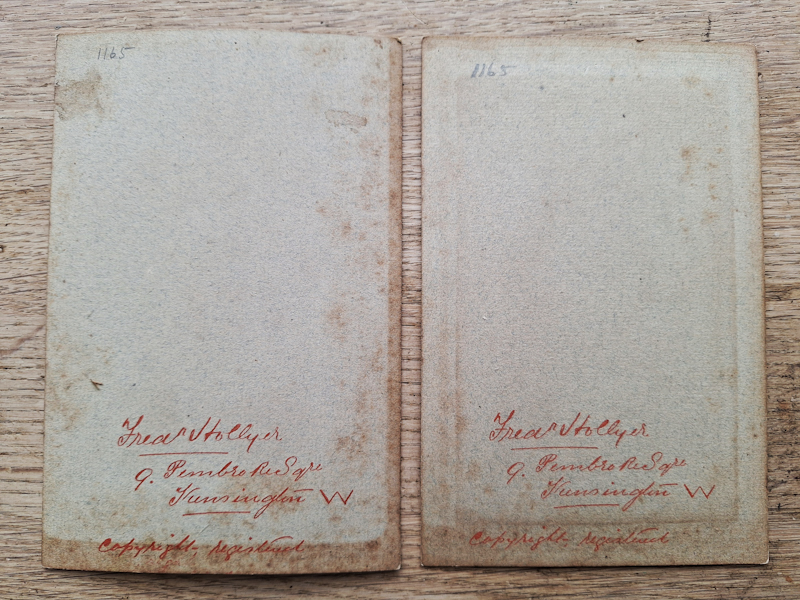 1165
Fredk Hollyer
9. Pembroke Sqre
Kensington W
copyright registered
1165
Fredk Hollyer
9. Pembroke Sqre
Kensington W
copyright registered